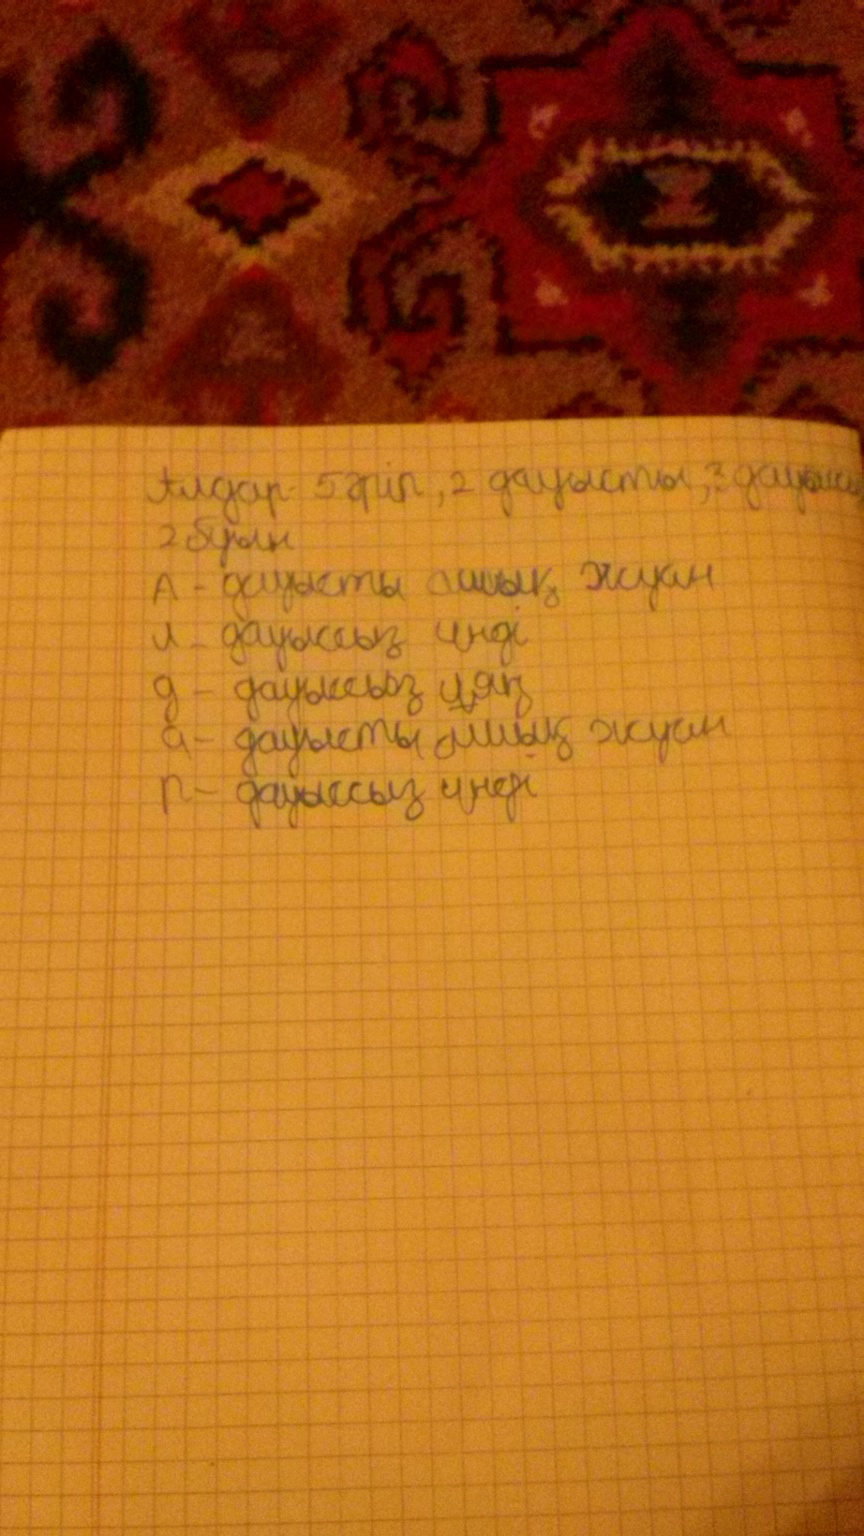 Алдар - 5 әріп, 2 дауысты, 3 дауыссыз
2 буын
А - дауысты ашық жуан
л - дауыссыз үнді
д - дауыссыз ұяң
а - дауысты ашық жуан
р - дауыссыз үнді